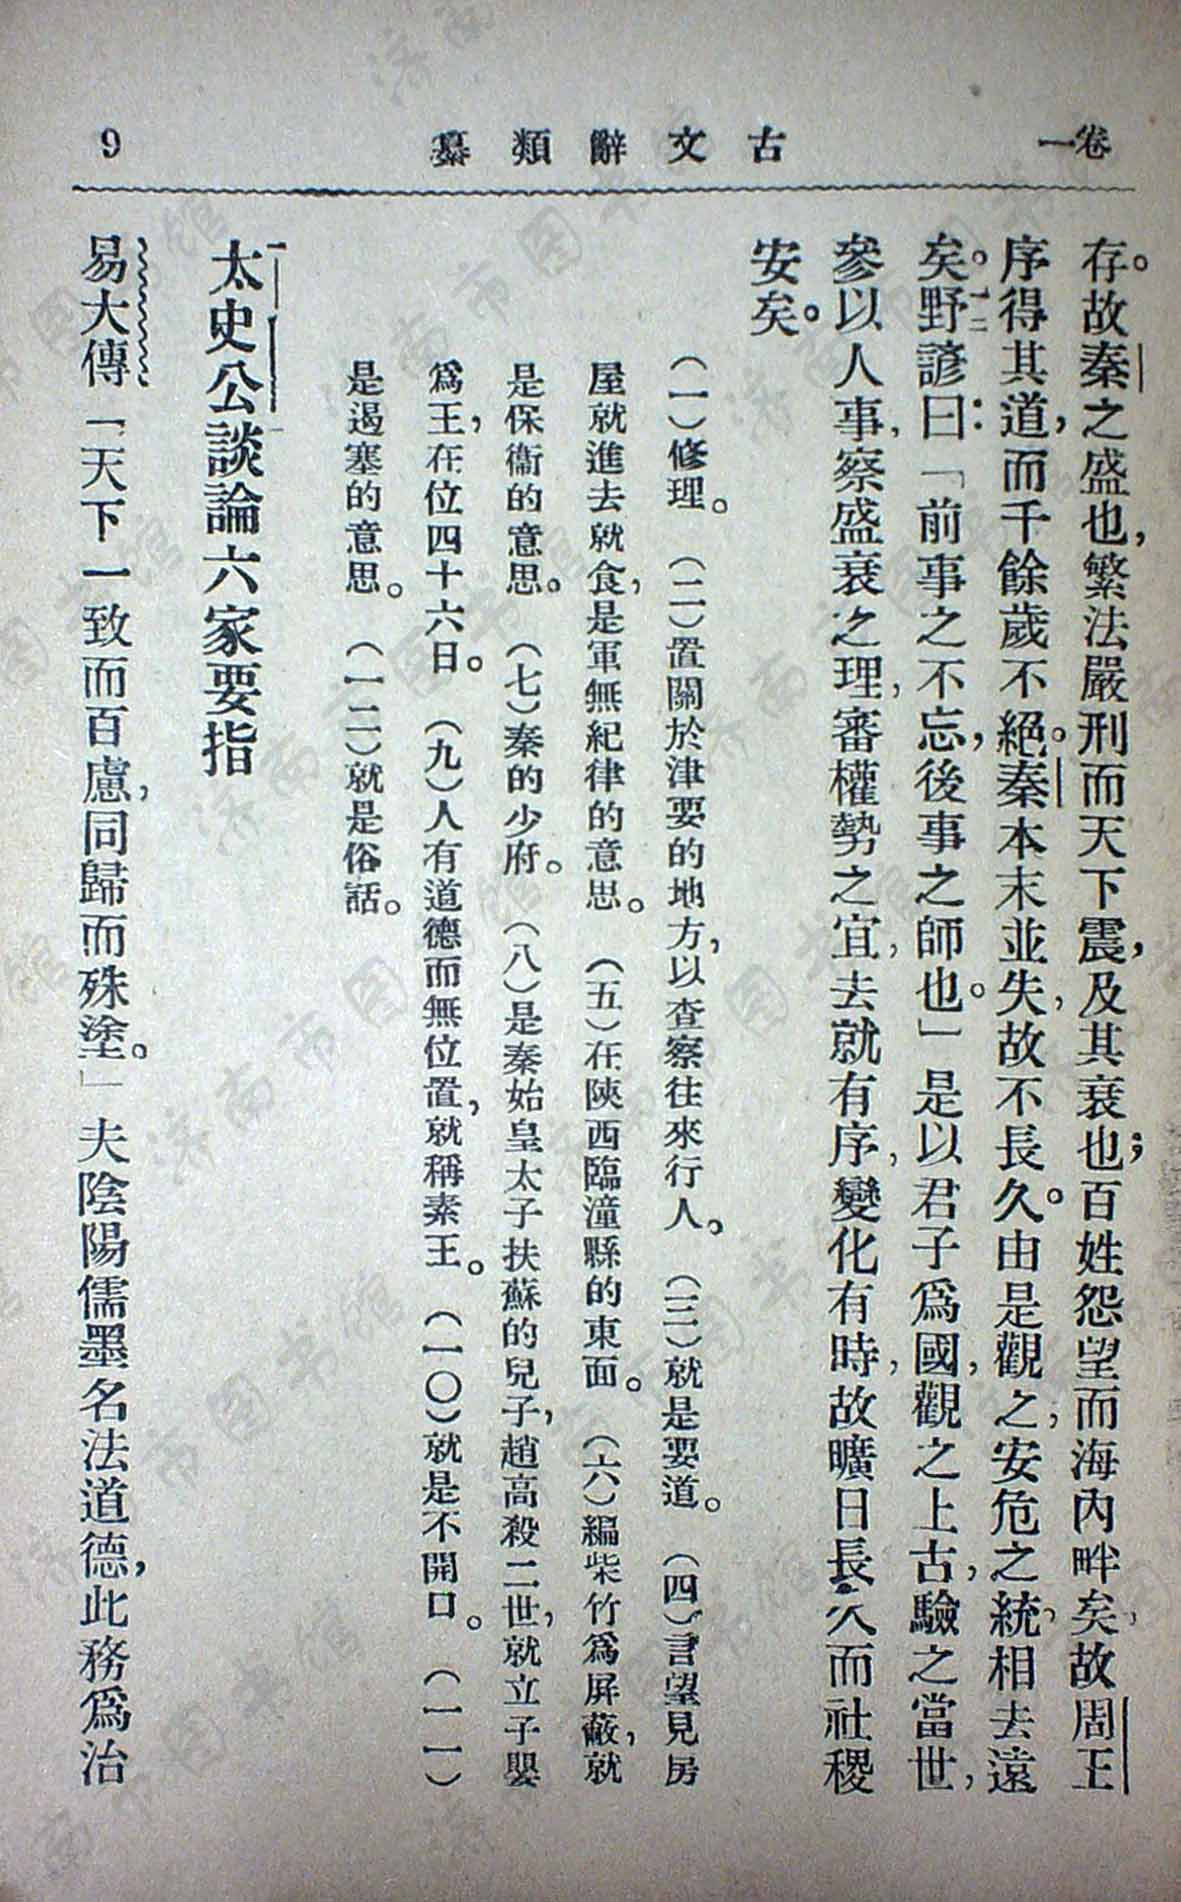 卷一
古文辭類纂
9
存。故秦之盛也，繁法嚴刑而天下震，及其衰也，百姓怨望而海內畔矣，故周王
序得其道，而千餘歲不絕。秦本末並失，故不長久。由是觀之，安危之統，相去遠
矣。野諺曰：「前事之不忘，後事之師也。」是以君子爲國，觀之上古，驗之當世，
參以人事，察盛衰之理，審權勢之宜，去就有序，變化有時，故曠日長久而社稷
安矣。
（一）修理。（二）置關於津要的地方，以查察往來行人。（三）就是要道。（四）言望見房
屋就進去就食，是軍無紀律的意思。（五）在陝西臨潼縣的東面。（六）編柴竹爲屏蔽，就
是保衞的意思。（七）秦的少府。（八）是秦始皇太子扶蘇的兒子，趙高殺二世，就立子嬰
爲王，在位四十六日。（九）人有道德而無位置，就稱素王。（一〇）就是不開口。（一一）
是遏塞的意思。（一二）就是俗話。
太史公談論六家要指
易大傳「天下一致而百慮，同歸而殊塗。」夫陰陽儒墨名法道德，此務爲治
濟南市图书馆